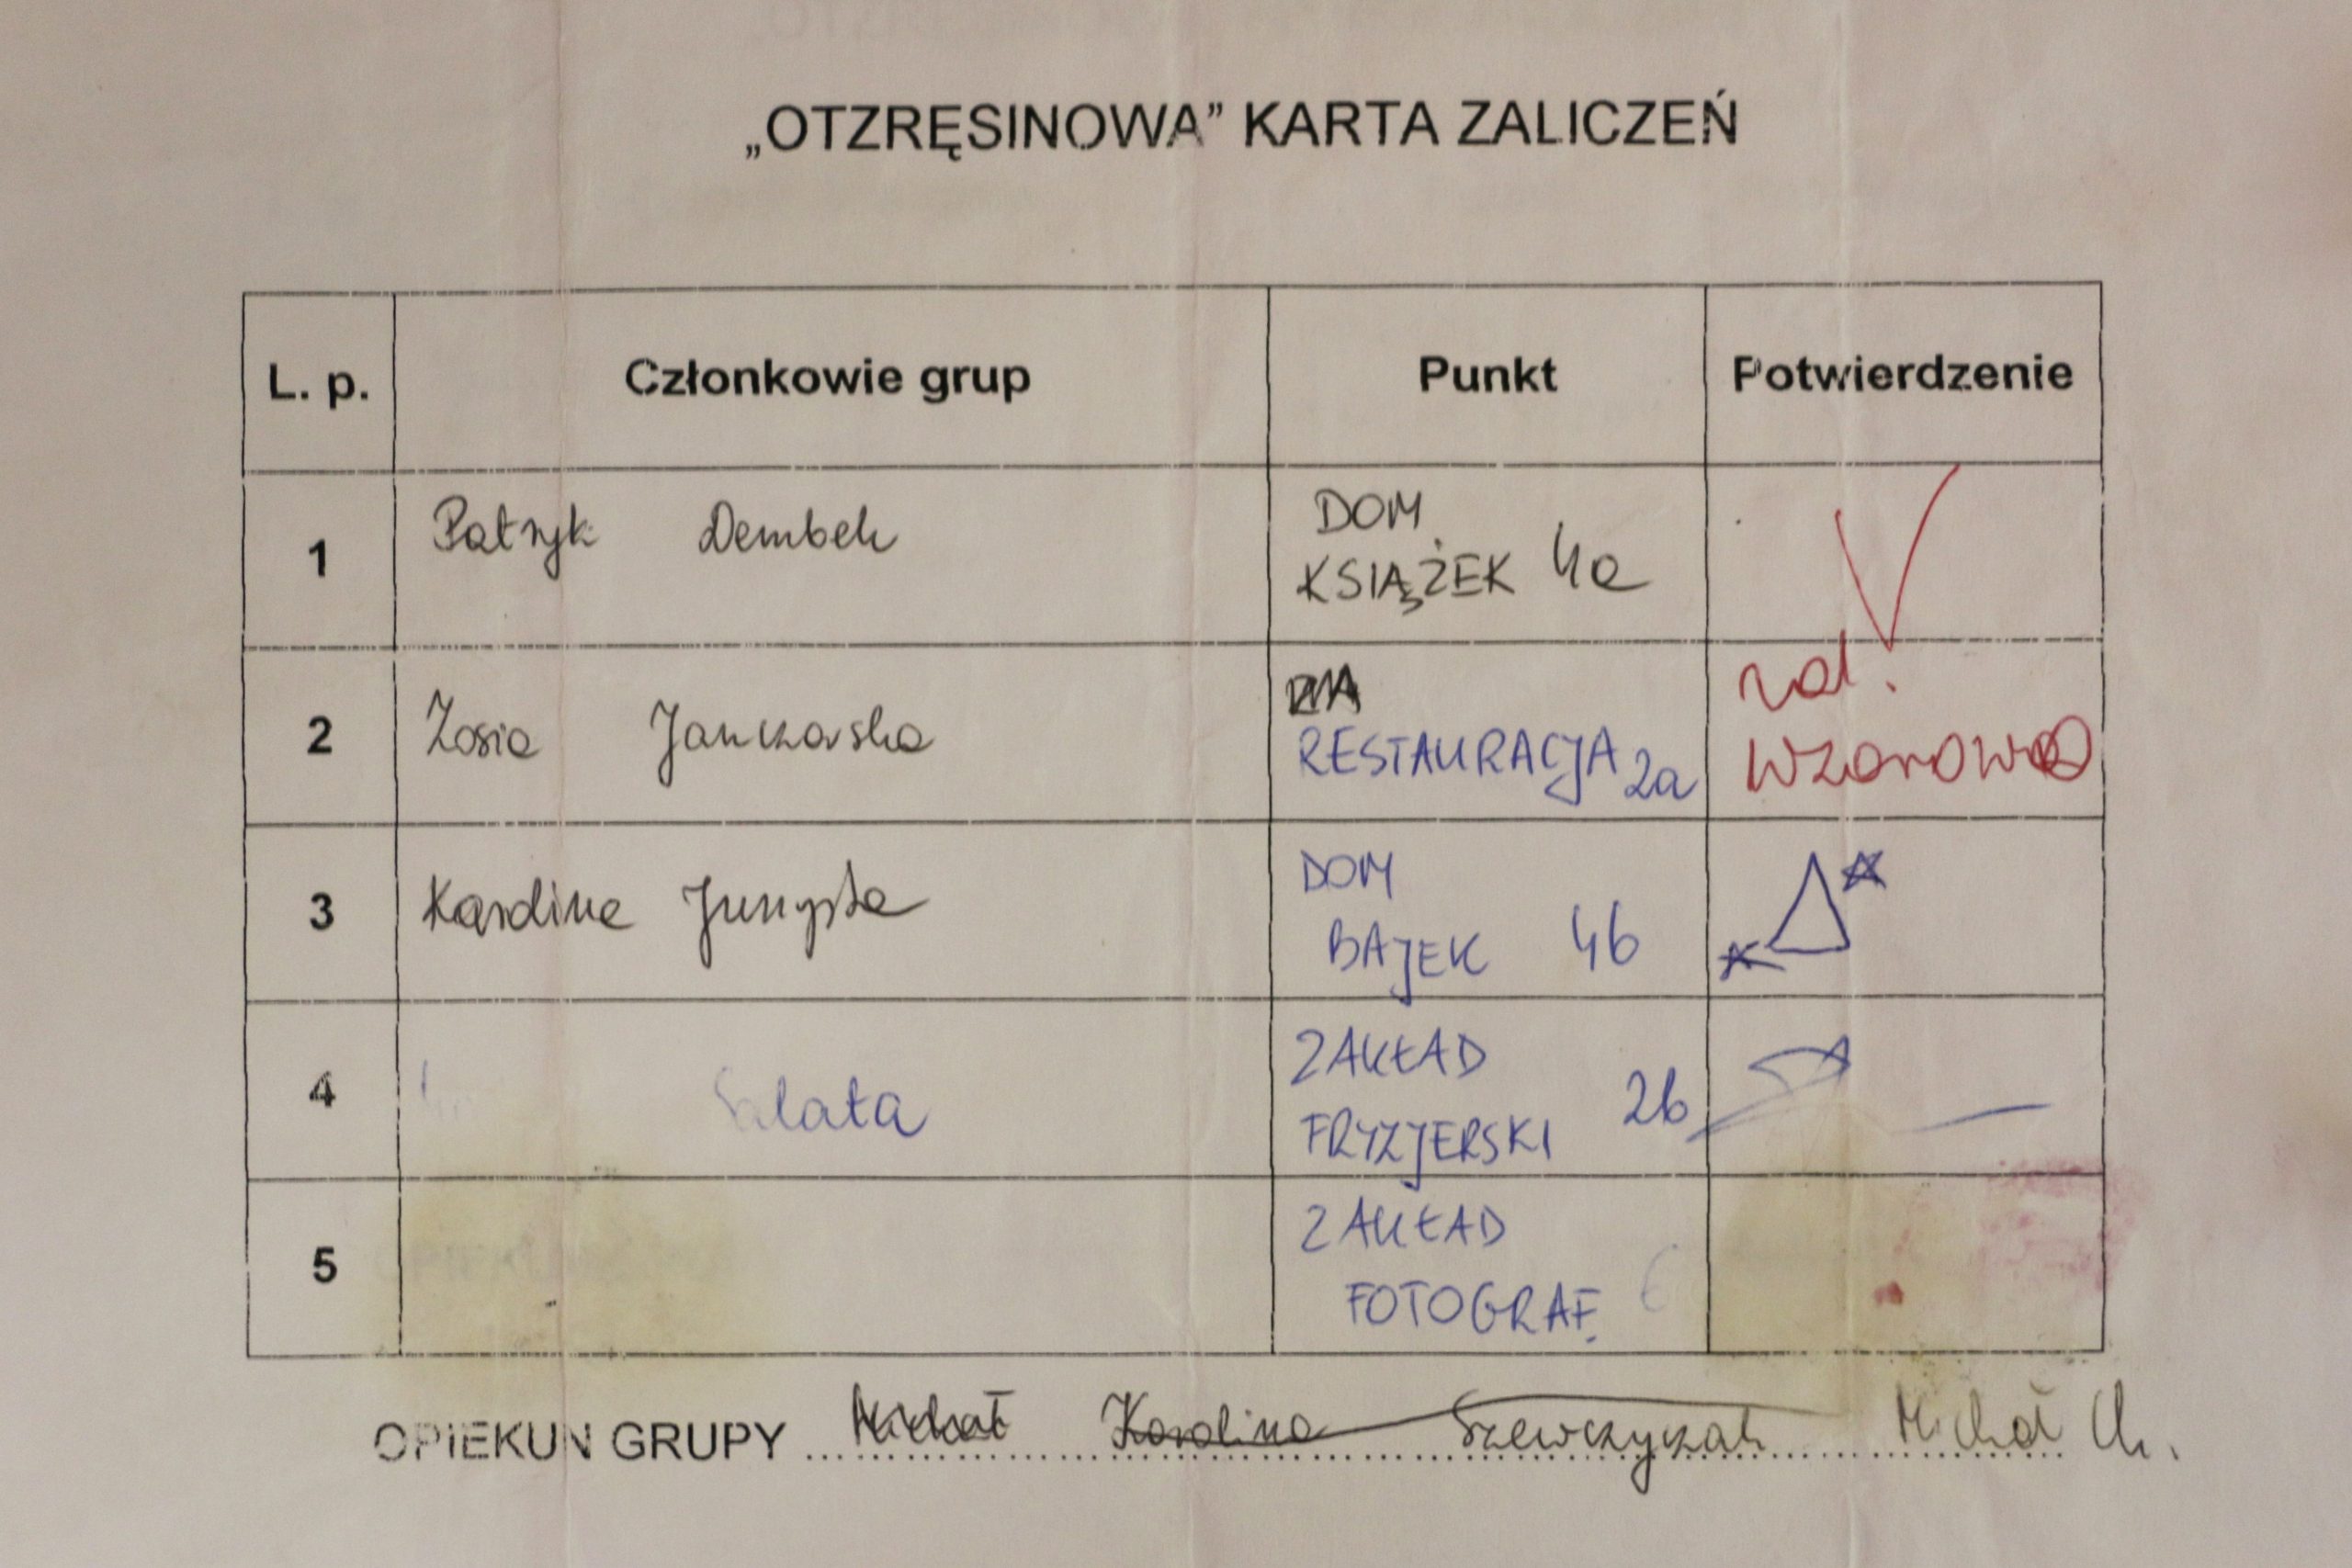 „OTZRĘSINOWA” KARTA ZALICZEŃ
L. p. Członkowie grup Punkt Potwierdzenie
1 Patryk Dembek DOM
KSIĄŻEK 4a
2 Zosia Janczarska
RESTAURACJA 2a
zal.
wzorowo
3 Karolina DOM
BAJEK 4b
4 ZAKŁAD
FRYZJERSKI 2b
5 ZAKŁAD
FOTOGRAF. 6
OPIEKUN GRUPY Michał Karolina Szewczyczak Michał Ch.